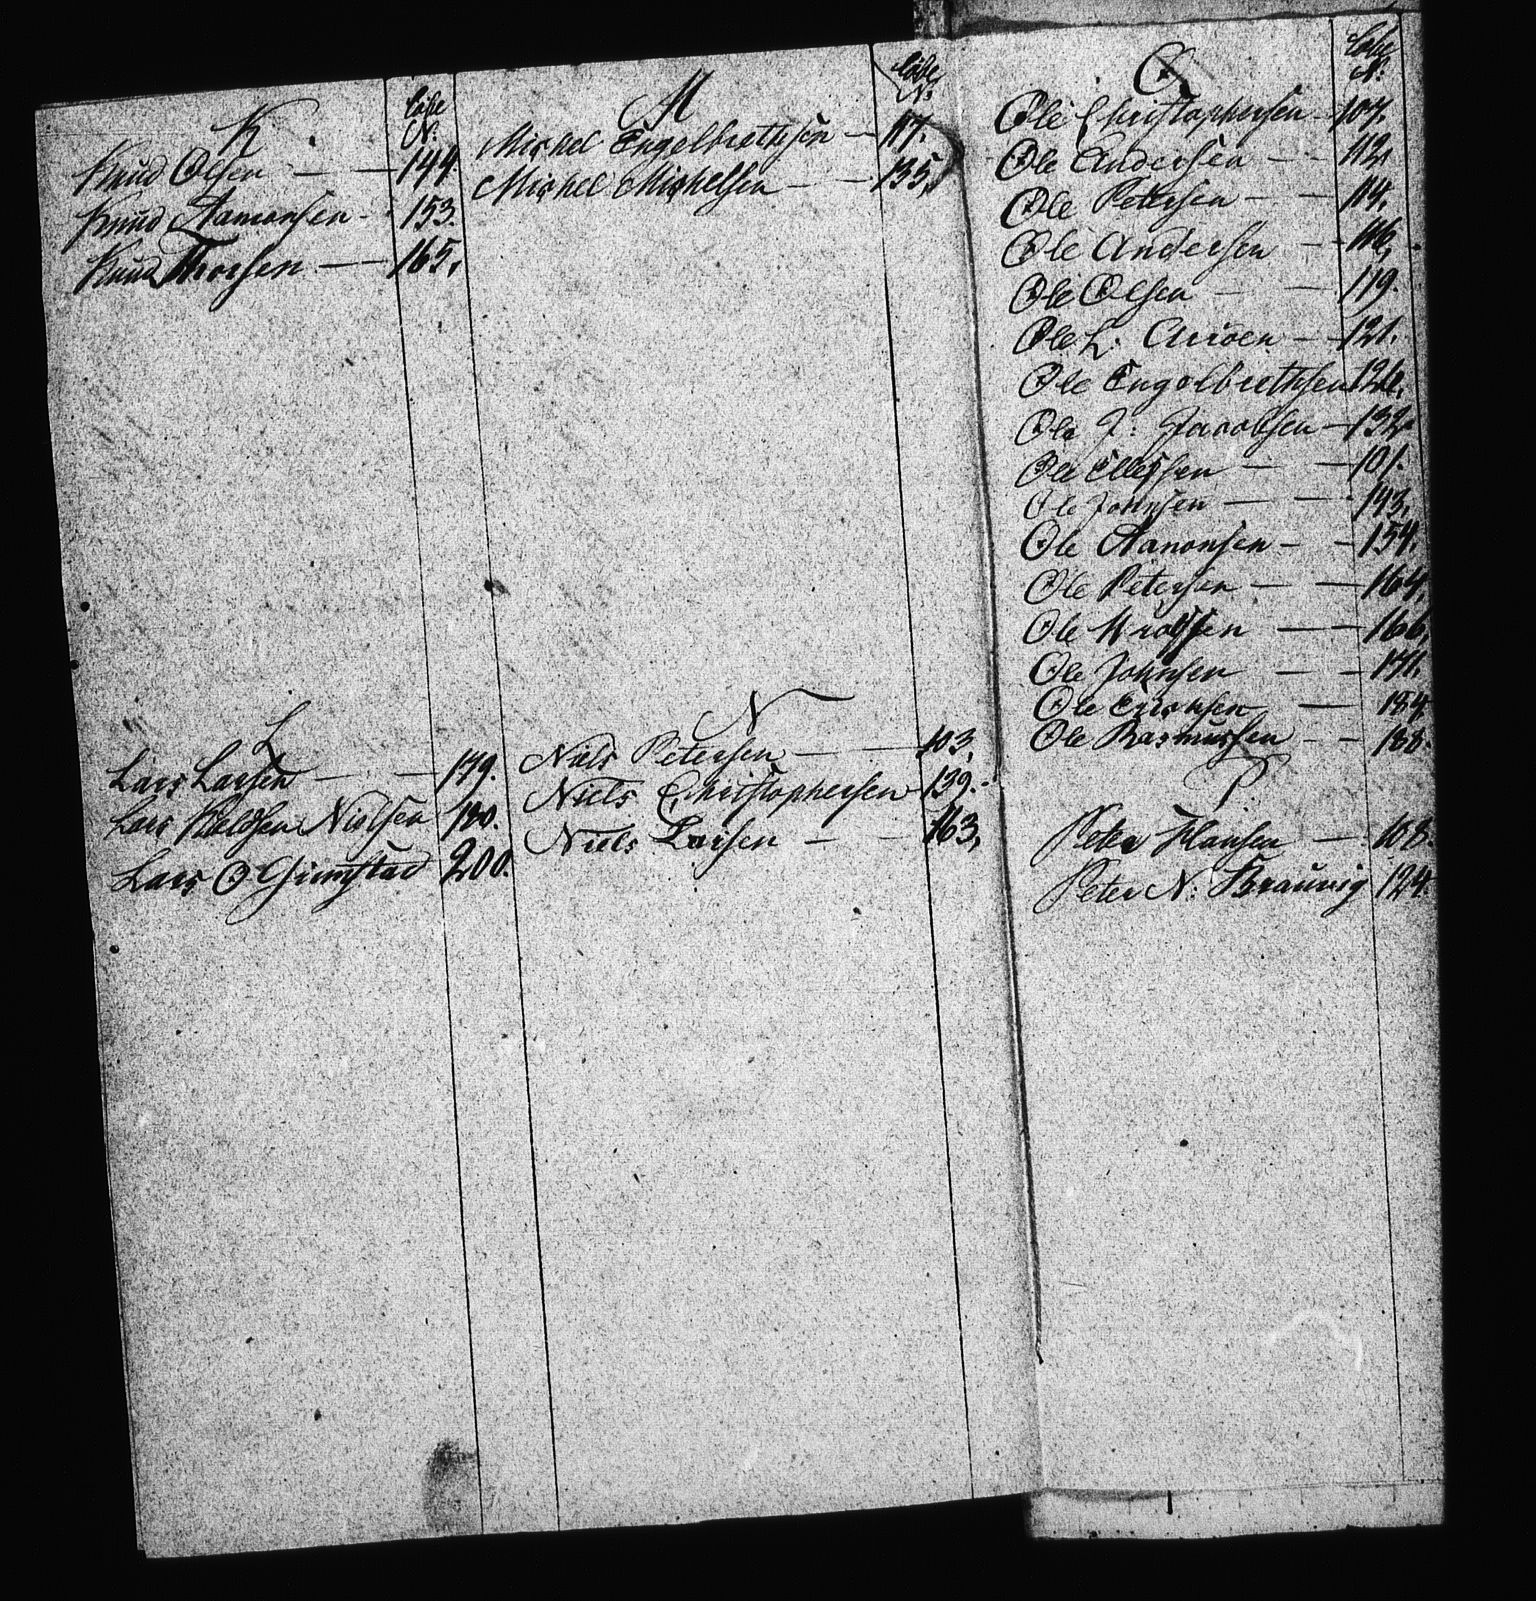 K.
Løbe
N.
Knud Olsen — — 144.
Knud Aamonsen - 153.
Knud Thorsen — 165.
L
Lars Larsen — — 179.
Lars Nielsen 180.
Lars O Grimstad 200.
M
Løbe
N:
Mishel Engelbrethsen — 117.
Mishel Mishelsen — — 135.
N
Niels Petersen — — 103,
Niels Christophersen 139.
Niels Larsen — — 163,
O
Løbe
N:
Ole Christophersen - 107.
Ole Andersen — — 112,
Ole Petersen — — 114,
Ole Andersen — — 116,
Ole Olsen — — 119.
Ole L. — — 121.
Ole Engelbrethsen 126.
Ole J: Jacobsen — 132
Ole Ellefsen — — 101.
Ole Johnsen — — 143,
Ole Aanonsen — — 154.
Ole Petersen — — 164,
Ole — — 166,
Ole Johnsen — — 171,
Ole — 184,
Ole Rasmussen — — 188.
P
Peter Hansen — 108.
Peter N: Braüvig 124.